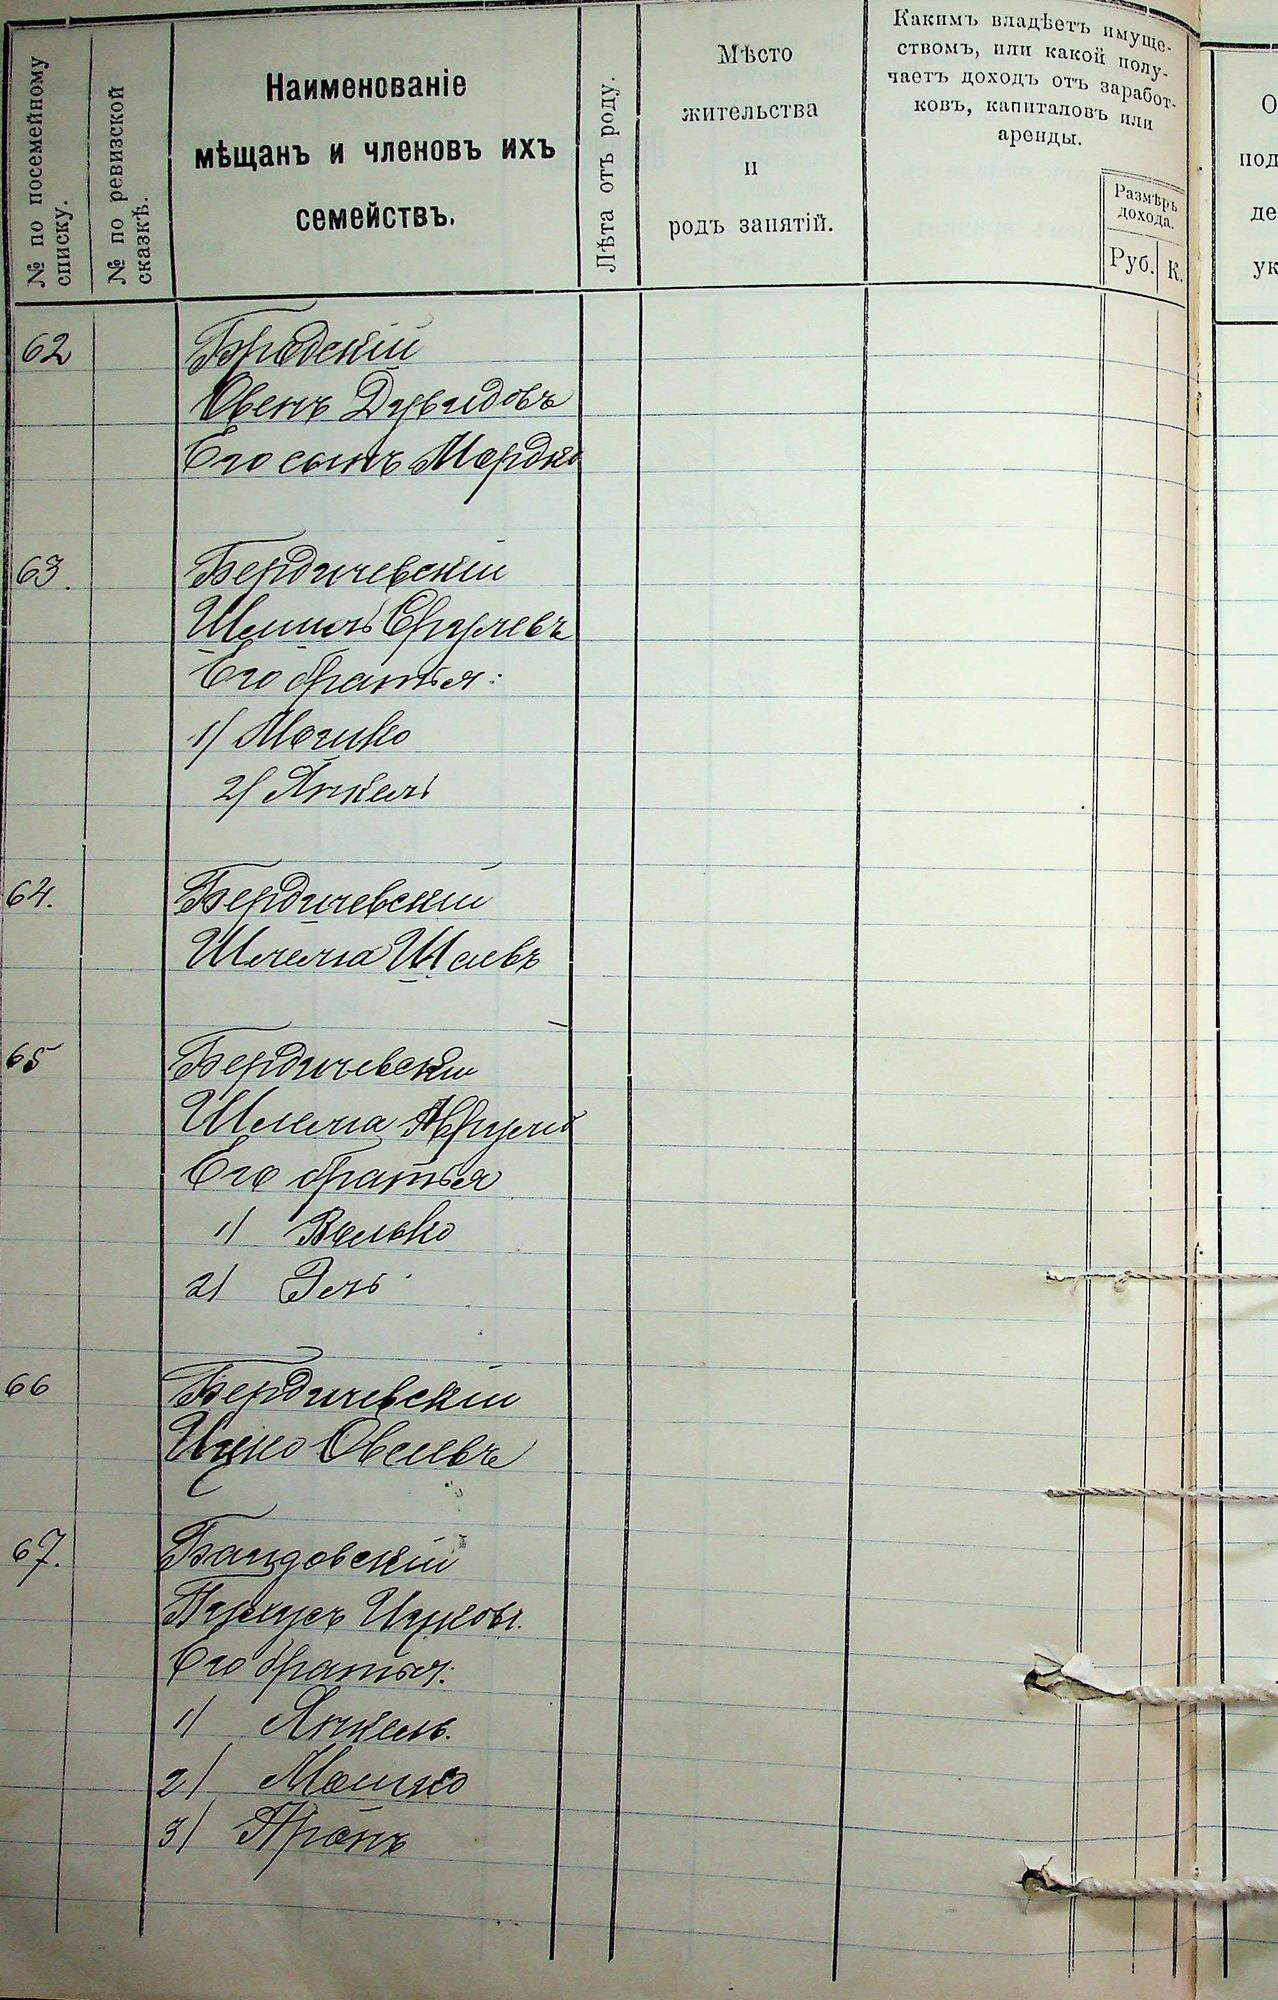 № по посемейному
списку.
№ по ревизской
сказкѣ.
Наименованіе
мѣщанъ и членовъ ихъ
семействъ.
Лѣта отъ роду.
Мѣсто
жительства
и
родъ занятій.
Какимъ владѣетъ имуще-
ствомъ, или какой полу-
чаетъ доходъ отъ заработ-
ковъ, капиталовъ или
аренды.
Размѣръ
дохода.
Руб. К.
О
под
де
ук
62 Бродскій
Овень Дувидовъ
Его сынъ Мордко
63. Бердичевскій
Шмиль Сруловъ
Его братья:
1/ Мошко
2/ Янкель
64. Бердичевскій
Шлема Шаевъ
65 Бердичевскій
Шлема
Его братья
1/ Волько
2/ Эль
66 Бердичевскій
Ицко Овсеевъ
67. Бандовскій
Ицков.
Его братья:
1/ Янкель.
2/ Мошко
3/ Аронъ